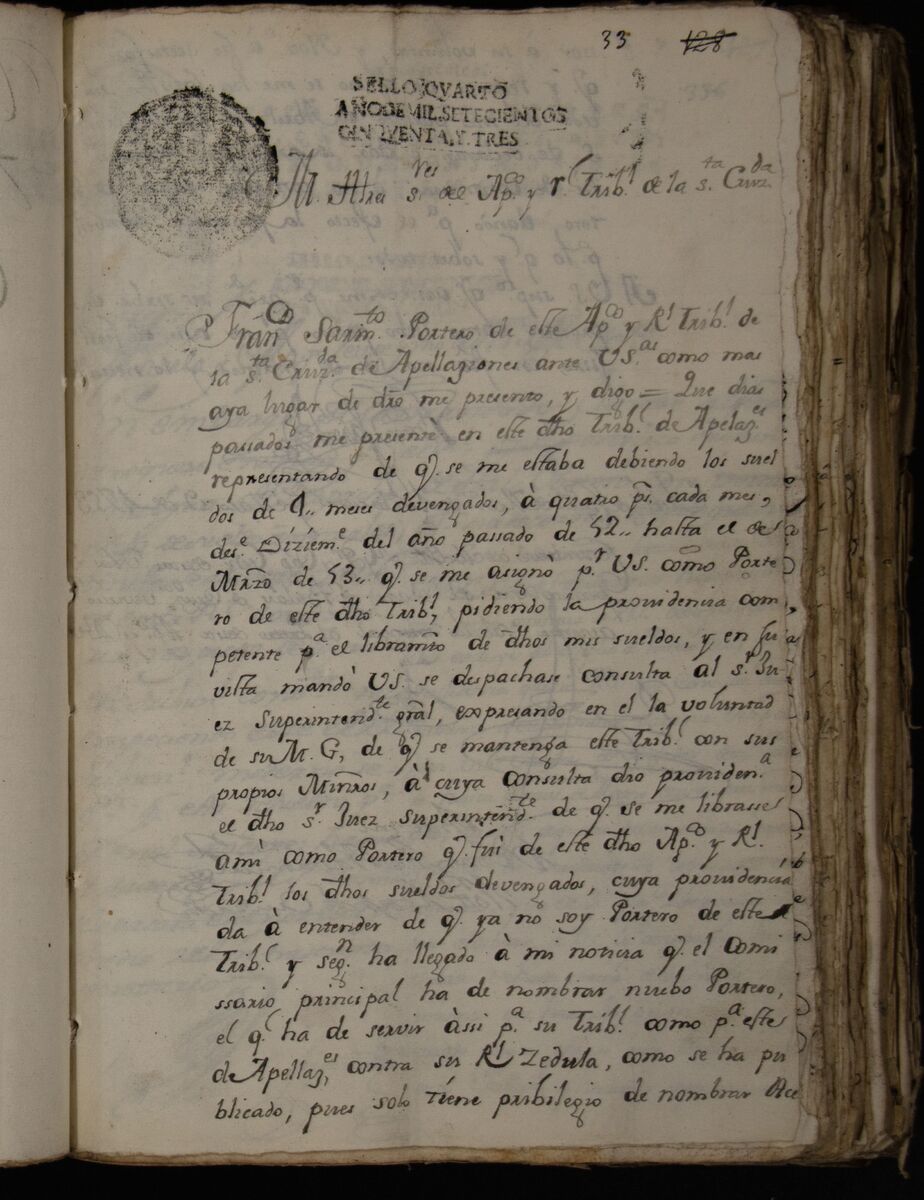 33 128
SELLO QVARTO
AÑO DE MIL SETECIENTOS
CINQVENTA, Y TRES
M. Iltres s.res de Ap.co y r.l Trib.l de la s.ta Cruz.da
Fran.co Sarm.to Portero de este Ap.co y R.l Trib.l de
la s.ta Cruz.da de Apellaziones ante US.as como mas
aya lugar de dro me presento, y digo = Que dias
passados me presentè en este dho Trib.l de Apelaz.es
representando de q.e se me estaba debiendo los suel
dos de 4,, meses devengados, à quatro p.s cada mes,
des.e Diziem.e del año passado de 52,, hasta el de
Mrzo de 53,, q.e se me asignò p.r US. como Porte
ro de este dho Trib.l, pidiendo la providencia com
petente p.a el libramto de dhos mis sueldos, y en su
vista mandò US. se despachase consulta al s.r Ju
ez Superintend.te gral, expresando en el la voluntad
de su M. G, de q.e se mantenga este Trib.l con sus
propios Minros, à cuya consulta dio providen.a
el dho s.r Juez Superintend.te de q.e se me librasse
ami como Portero q.e fui de este dho Ap.co y R.l
Trib.l los dhos sueldos devengados, cuya providencia
da à entender de q.e ya no soy Portero de este
Trib.l y seg.n ha llegado à mi noticia q.e el Comi
ssario principal ha de nombrar nuebo Portero,
el q.e ha de servir àssi p.a su Trib.l como p.a este
de Apellaz.es, contra su R.l Zedula, como se ha pu
blicado, pues solo tiene pribilegio de nombrar